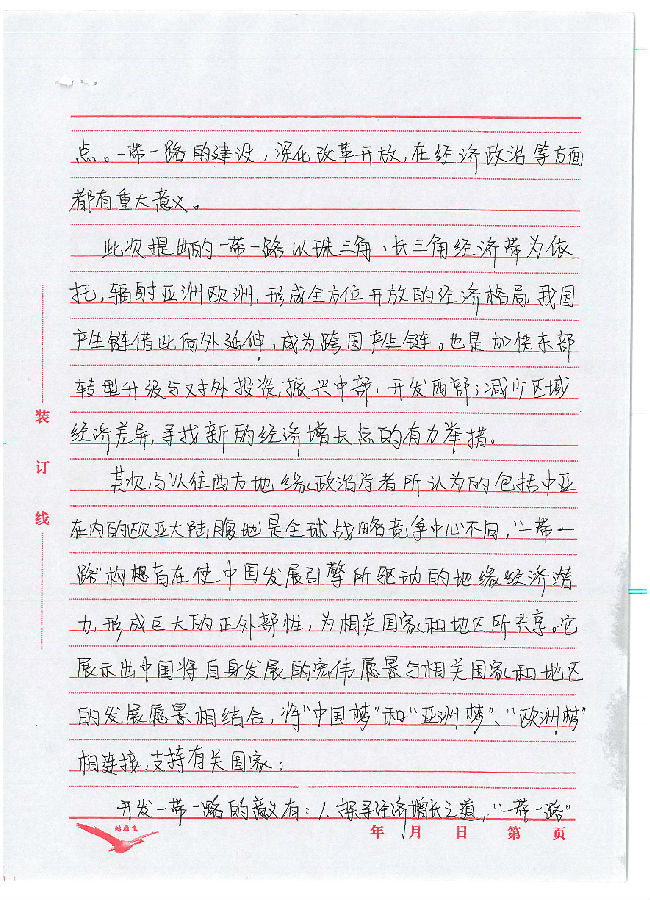 点。一带一路的建设，深化改革开放，在经济政治等方面
都有重大意义。
此次提出的一带一路以珠三角、长三角经济带为依
托，辐射亚洲欧洲，形成全方位开放的经济格局，我国
产业链借此向外延伸，成为跨国产业链。也是加快东部
转型升级与对外投资，振兴中部，开发西部；减少区域
经济差异，寻找新的经济增长点的有力举措。
其次与以往西方地缘政治学者所认为的包括中亚
在内的欧亚大陆腹地是全球战略竞争中心不同，“一带一
路”构想旨在使中国发展引擎所驱动的地缘经济潜
力，形成巨大的正外部性，为相关国家和地区所共享。它
展示出中国将自身发展的宏伟愿景与相关国家和地区
的发展愿景相结合，将“中国梦”和“亚洲梦”、“欧洲梦”
相连接，支持有关国家；
开发一带一路的意义有：1、探寻经济增长之道，“一带一路”
装
订
线
年 月 日 第 页